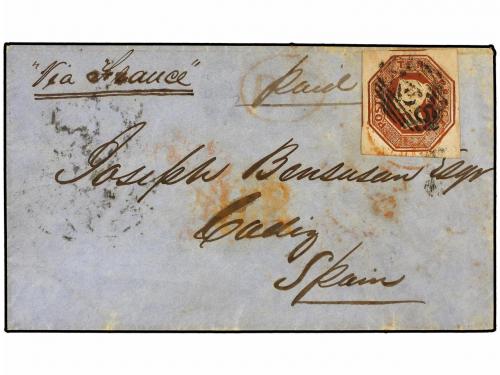 "Via France"
Paid
Joseph Bensusan Esqr
Cadiz
Spain